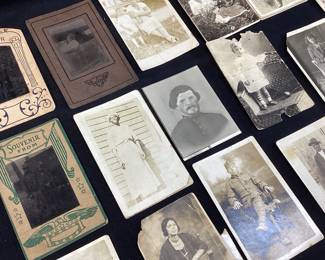 SOUVENIR
FROM